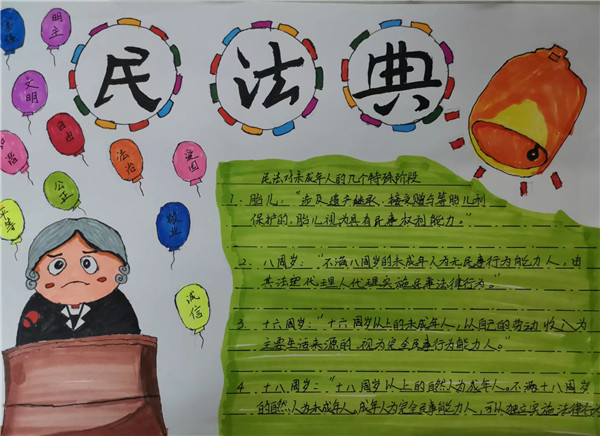 民法典
明主
文明
自由
法治
爱国
公正
平等
敬业
诚信
民法对未成年人的几个特殊阶段
1、胎儿："涉及遗产继承、接受赠与等胎儿利
保护的,胎儿视为具有民事权利能力。"
2、八周岁："不满八周岁的未成年人为无民事行为能力人，由
其法定代理人代理实施民事法律行为。"
3、十六周岁："十六周岁以上的未成年人,以自己的劳动收入为
主要生活来源的,视为完全民事行为能力人。"
4、十八周岁："十八周岁以上的自然人为成年人。不满十八周岁
的自然人为未成年人。成年人为完全民事能力人,可以独立实施法律行